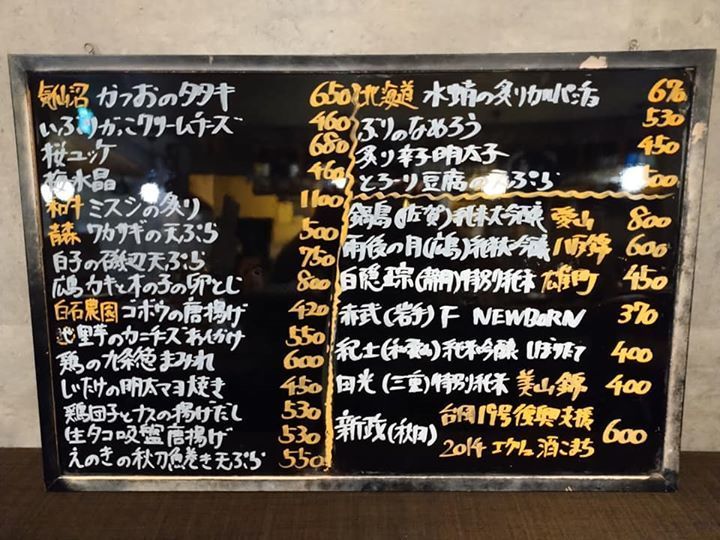 気仙沼 かつおのタタキ 650
いぶりがっこクリームチーズ 460
桜ユッケ 680
梅水晶 460
和牛 ミスジの炙り 1100
青森 ワカサギの天ぷら 500
白子の磯辺天ぷら 750
広島 カキと木の子の卵とじ 800
白石農園 ゴボウの唐揚げ 420
里芋のカニチーズあんかけ 550
鶏の九条葱まみれ 600
しいたけの明太マヨ焼き 450
鶏団子とナスの揚げだし 530
生タコ吸盤唐揚げ 530
えのきの秋刀魚巻き天ぷら 550
北海道 水蛸の炙りカルパッチョ
ぶりのなめろう 530
炙り辛子明太子 450
とろ〜り豆腐の天ぷら
鍋島(佐賀)純米大吟醸 愛山 800
雨後の月(広島)純米大吟醸 八反錦 600
白隠正宗(静岡)特別純米 雄町 450
赤武(岩手)F NEWBORN 370
紀土(和歌山)純米吟醸 しぼりたて 400
田光(三重)特別純米 美山錦 400
新政(秋田) 台風19号復興支援 600
2014 エクリュ 酒こまち